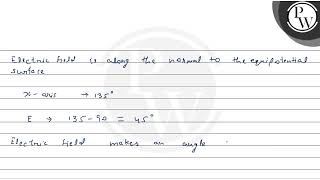 PW
Electric field is along the normal to the equipotential
surface
x-axis → 135°
E → 135-90 = 45°
Electric field makes an angle